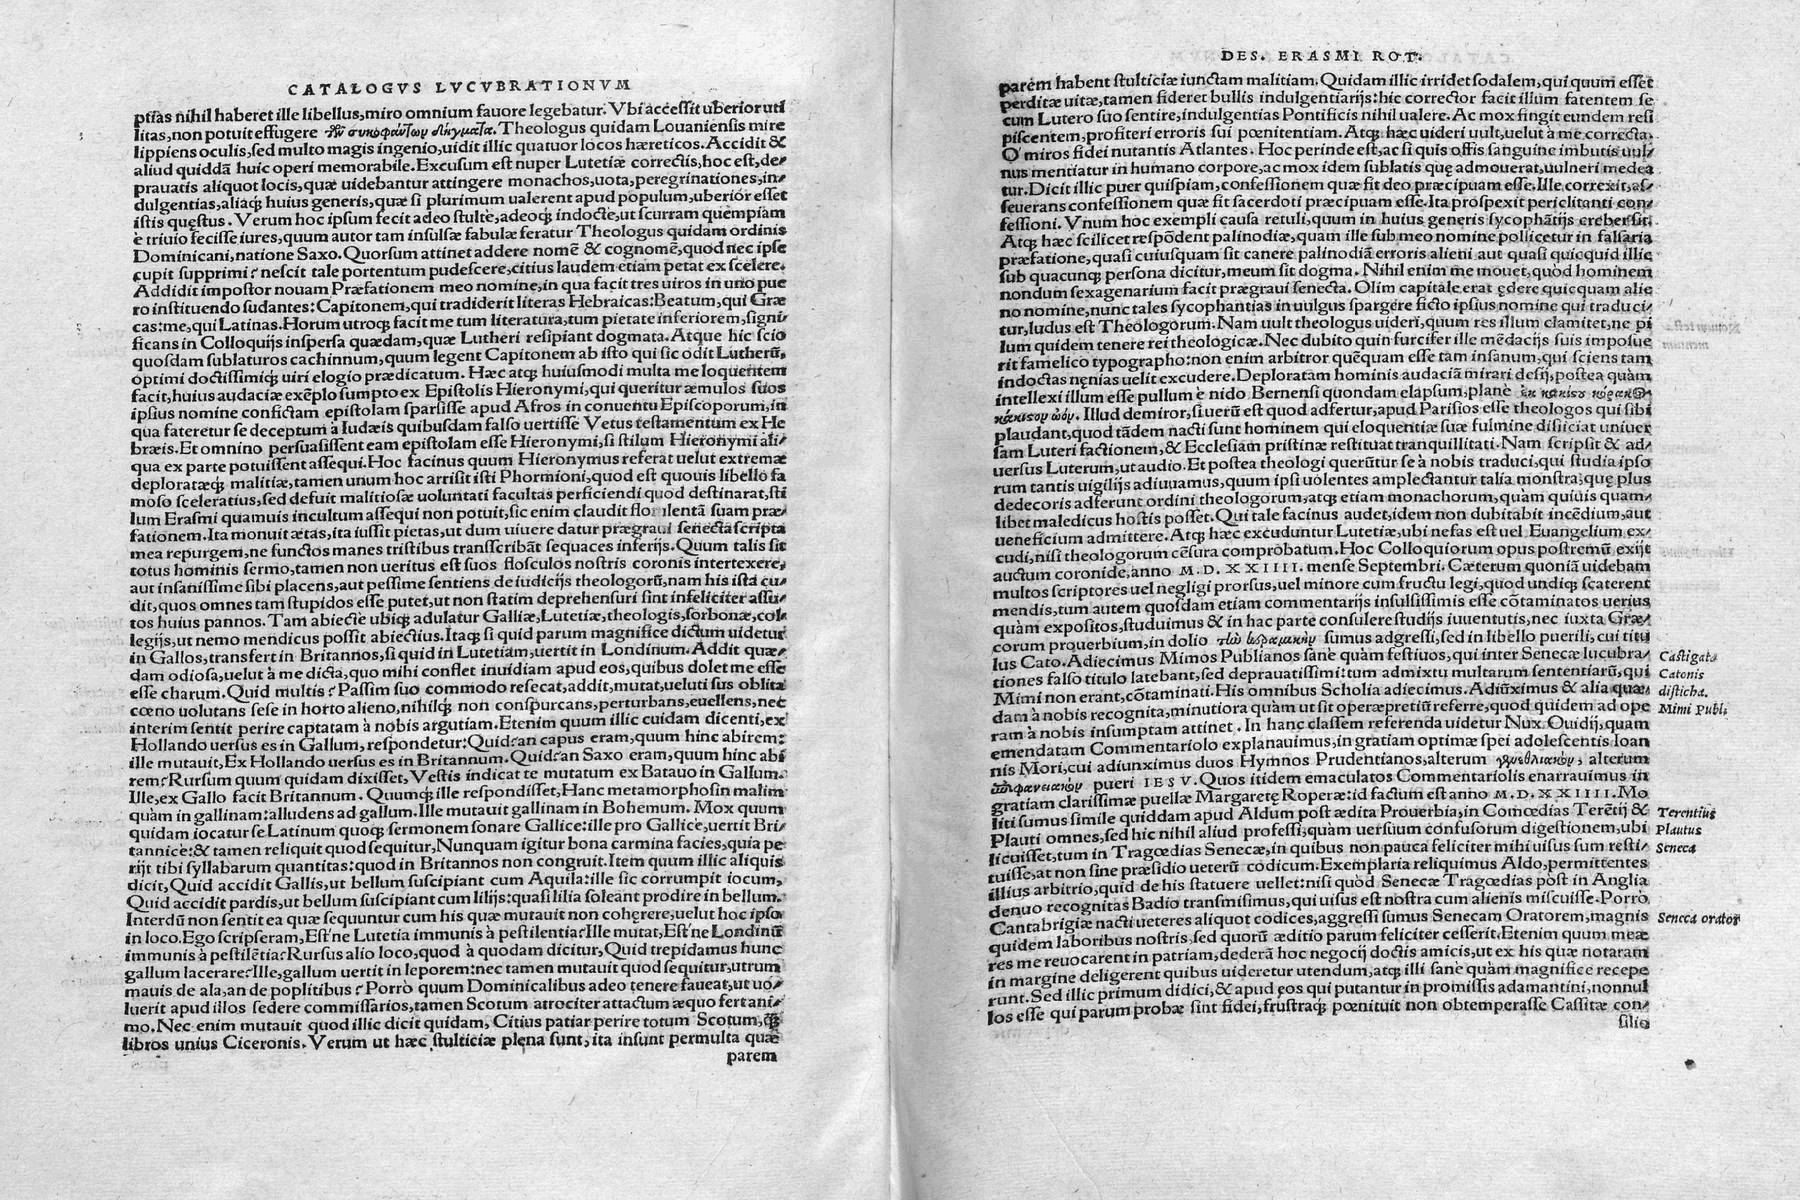 CATALOGVS LVCVBRATIONVM
ptias nihil haberet ille libellus, miro omnium fauore legebatur. Vbi accessit uberior uti
litas, non potuit effugere τῶν συκοφάντων δήγματα. Theologus quidam Louaniensis mire
lippiens oculis, sed multo magis ingenio, uidit illic quatuor locos hæreticos. Accidit &
aliud quiddã huic operi memorabile. Excusum est nuper Lutetiæ correctis, hoc est, de-
prauatis aliquot locis, quæ uidebantur attingere monachos, uota, peregrinationes, in-
dulgentias, aliaq; huius generis, quæ si plurimum ualerent apud populum, uberior esset
istis quęstus. Verum hoc ipsum fecit adeo stulte, adeoq; indocte, ut scurram quempiam
è triuio fecisse iures, quum autor tam insulsæ fabulæ feratur Theologus quidam ordinis
Dominicani, natione Saxo. Quorsum attinet addere nomē & cognomē, quod nec ipse
cupit supprimi? nescit tale portentum pudescere, citius laudem etiam petat ex scelere.
Addidit impostor nouam Præfationem meo nomine, in qua facit tres uiros in uno pue
ro instituendo sudantes: Capitonem, qui tradiderit literas Hebraicas: Beatum, qui Græ
cas: me, qui Latinas. Horum utroq; facit me tum literatura, tum pietate inferiorem, signi-
ficans in Colloquijs inspersa quædam, quæ Lutheri resipiant dogmata. Atque hic scio
quosdam sublaturos cachinnum, quum legent Capitonem ab isto qui sic odit Lutherũ,
optimi doctissimiq; uiri elogio prædicatum. Hæc atq; huiusmodi multa me loquentem
facit, huius audaciæ exẽplo sumpto ex Epistolis Hieronymi, qui queritur æmulos suos
ipsius nomine confictam epistolam sparsisse apud Afros in conuentu Episcoporum, in
qua fateretur se deceptum à Iudæis quibusdam falso uertisse Vetus testamentum ex He
bræis. Et omnino persuasissent eam epistolam esse Hieronymi, si stilum Hieronymi ali-
qua ex parte potuissent assequi. Hoc facinus quum Hieronymus referat uelut extremæ
deploratæq; malitiæ, tamen unum hoc arrisit isti Phormioni, quod est quouis libello fa
moso sceleratius, sed defuit malitiosæ uoluntati facultas perficiendi quod destinarat, sti
lum Erasmi quamuis incultum assequi non potuit, sic enim claudit florulentã suam præ-
fationem. Ita monuit ætas, ita iussit pietas, ut dum uiuere datur prægraui senecta scripta
mea repurgem, ne functos manes tristibus transscribãt sequaces inferijs. Quum talis sit
totus hominis sermo, tamen non ueritus est suos flosculos nostris coronis intertexere,
aut insanissime sibi placens, aut pessime sentiens de iudicijs theologorũ, nam his ista cu-
dit, quos omnes tam stupidos esse putet, ut non statim deprehensuri sint infeliciter assu-
tos huius pannos. Tam abiecte ubiq; adulatur Galliæ, Lutetiæ, theologis, sorbonæ, col-
legijs, ut nemo mendicus possit abiectius. Itaq; si quid parum magnifice dictum uidetur
in Gallos, transfert in Britannos, si quid in Lutetiam, uertit in Londinum. Addit quæ-
dam odiosa, uelut à me dicta, quo mihi conflet inuidiam apud eos, quibus dolet me esse
esse charum. Quid multis? Passim suo commodo resecat, addit, mutat, ueluti sus oblita
cœno uolutans sese in horto alieno, nihilq; non conspurcans, perturbans, euellens, nec
interim sentit perire captatam à nobis argutiam. Etenim quum illic cuidam dicenti, ex
Hollando uersus es in Gallum, respondetur: Quid? an capus eram, quum hinc abirem:
ille mutauit, Ex Hollando uersus es in Britannum. Quid? an Saxo eram, quum hinc abi
rem? Rursum quum quidam dixisset, Vestis indicat te mutatum ex Batauo in Gallum.
Ille, ex Gallo facit Britannum. Quumq; ille respondisset, Hanc metamorphosin malim
quàm in gallinam: alludens ad gallum. Ille mutauit gallinam in Bohemum. Mox quum
quidam iocatur se Latinum quoq; sermonem sonare Gallice: ille pro Gallice, uertit Bri-
tannice: & tamen reliquit quod sequitur, Nunquam igitur bona carmina facies, quia pe
rijt tibi syllabarum quantitas: quod in Britannos non congruit. Item quum illic aliquis
dicit, Quid accidit Gallis, ut bellum suscipiant cum Aquila: ille sic corrumpit iocum,
Quid accidit pardis, ut bellum suscipiant cum lilijs: quasi lilia soleant prodire in bellum.
Interdũ non sentit ea quæ sequuntur cum his quæ mutauit non cohęrere, uelut hoc ipso
in loco. Ego scripseram, Est'ne Lutetia immunis à pestilentia? Ille mutat, Est'ne Londinũ
immunis à pestilẽtia? Rursus alio loco, quod à quodam dicitur, Quid trepidamus hunc
gallum lacerare? Ille, gallum uertit in leporem: nec tamen mutauit quod sequitur, utrum
mauis de ala, an de poplitibus? Porrò quum Dominicalibus adeo tenere faueat, ut uo-
luerit apud illos sedere commissarios, tamen Scotum atrociter attactum æquo fert ani-
mo. Nec enim mutauit quod illic dicit quidam, Citius patiar perire totum Scotum, q̃
libros unius Ciceronis. Verum ut hæc stulticiæ plena sunt, ita insunt permulta quæ
parem
DES. ERASMI ROT.
parem habent stulticiæ iunctam malitiam. Quidam illic irridet sodalem, qui quum esset
perditæ uitæ, tamen fideret bullis indulgentiarijs: hic corrector facit illum fatentem se
cum Lutero suo sentire, indulgentias Pontificis nihil ualere. Ac mox fingit eundem resi
piscentem, profiteri erroris sui pœnitentiam. Atq; hæc uideri uult, uelut à me correcta.
O' miros fidei nutantis Atlantes. Hoc perinde est, ac si quis offis sanguine imbutis uul-
nus mentiatur in humano corpore, ac mox idem sublatis quę admouerat, uulneri medea
tur. Dicit illic puer quispiam, confessionem quæ fit deo præcipuam esse. Ille correxit, as-
seuerans confessionem quæ fit sacerdoti præcipuam esse. Ita prospexit periclitanti con-
fessioni. Vnum hoc exempli causa retuli, quum in huius generis sycophãtijs creber sit.
Atq; hæc scilicet respõdent palinodiæ, quam ille sub meo nomine pollicetur in falsaria
præfatione, quasi cuiusquam sit canere palinodiã erroris alieni aut quasi quicquid illic
sub quacunq; persona dicitur, meum sit dogma. Nihil enim me mouet, quòd hominem
nondum sexagenarium facit prægraui senecta. Olim capitale erat ędere quicquam alie
no nomine, nunc tales sycophantias in uulgus spargere ficto ipsius nomine qui traduci-
tur, ludus est Theologorum. Nam uult theologus uideri, quum res illum clamitet, ne pi
lum quidem tenere rei theologicæ. Nec dubito quin furcifer ille mẽdacijs suis imposue
rit famelico typographo: non enim arbitror quẽquam esse tam insanum, qui sciens tam
indoctas nęnias uelit excudere. Deploratam hominis audaciã mirari desij, postea quàm
intellexi illum esse pullum è nido Bernensi quondam elapsum, planè ἐκ κακίσου κόρακος
κάκιστον ὠόν. Illud demiror, si uerũ est quod adfertur, apud Parisios esse theologos qui sibi
plaudant, quod tãdem nacti sunt hominem qui eloquentiæ suæ fulmine disijciat uniuer
sam Luteri factionem, & Ecclesiam pristinæ restituat tranquillitati. Nam scripsit & ad-
uersus Luterum, ut audio. Et postea theologi querũtur se à nobis traduci, qui studia ipso
rum tantis uigilijs adiuuamus, quum ipsi uolentes amplectantur talia monstra, quę plus
dedecoris adferunt ordini theologorum, atq; etiam monachorum, quàm quiuis quam-
libet maledicus hostis posset. Qui tale facinus audet, idem non dubitabit incẽdium, aut
ueneficium admittere. Atq; hæc excuduntur Lutetiæ, ubi nefas est uel Euangelium ex-
cudi, nisi theologorum cẽsura comprobatum. Hoc Colloquiorum opus postremũ exijt
auctum coronide, anno M. D. XXIIII. mense Septembri. Cæterum quoniã uidebam
multos scriptores uel negligi prorsus, uel minore cum fructu legi, quod undiq; scaterent
mendis, tum autem quosdam etiam commentarijs insulsissimis esse cõtaminatos uerius
quàm expositos, studuimus & in hac parte consulere studijs iuuentutis, nec iuxta Græ-
corum prouerbium, in dolio τὴν κεραμικὴν sumus adgressi, sed in libello puerili, cui titu
lus Cato. Adiecimus Mimos Publianos sanè quàm festiuos, qui inter Senecæ lucubra-
tiones falso titulo latebant, sed deprauatissimi: tum admixtu multarum sententiarũ, qui
Mimi non erant, cõtaminati. His omnibus Scholia adiecimus. Adiũximus & alia quæ-
dam à nobis recognita, minutiora quàm ut sit operæpretiũ referre, quod quidem ad ope
ram à nobis insumptam attinet. In hanc classem referenda uidetur Nux Ouidij, quam
emendatam Commentariolo explanauimus, in gratiam optimæ spei adolescentis Ioan
nis Mori, cui adiunximus duos Hymnos Prudentianos, alterum γενεθλιακὸν, alterum
ἐπιφανειακὸν pueri IESV. Quos itidem emaculatos Commentariolis enarrauimus in
gratiam clarissimæ puellæ Margaretę Roperæ: id factum est anno M. D. XXIIII. Mo
liti sumus simile quiddam apud Aldum post ædita Prouerbia, in Comœdias Terẽtij &
Plauti omnes, sed hic nihil aliud professi, quàm uersuum confusorum digestionem, ubi
licuisset, tum in Tragœdias Senecæ, in quibus non pauca feliciter mihi uisus sum resti-
tuisse, at non sine præsidio ueterũ codicum. Exemplaria reliquimus Aldo, permittentes
illius arbitrio, quid de his statuere uellet: nisi quòd Senecæ Tragœdias post in Anglia
denuo recognitas Badio transmisimus, qui uisus est nostra cum alienis miscuisse. Porrò
Cantabrigiæ nacti ueteres aliquot codices, aggressi sumus Senecam Oratorem, magnis
quidem laboribus nostris, sed quorũ æditio parum feliciter cesserit. Etenim quum meæ
res me reuocarent in patriam, dederã hoc negocij doctis amicis, ut ex his quæ notaram
in margine deligerent quibus uideretur utendum, atq; illi sanè quàm magnifice recepe
runt. Sed illic primum didici, & apud eos qui putantur in promissis adamantini, nonnul
los esse qui parum probæ sint fidei, frustraq; pœnituit non obtemperasse Cassitæ con-
silio
Castigata
Catonis
disticha.
Mimi Publi,
Terentius
Plautus
Seneca
Seneca orator